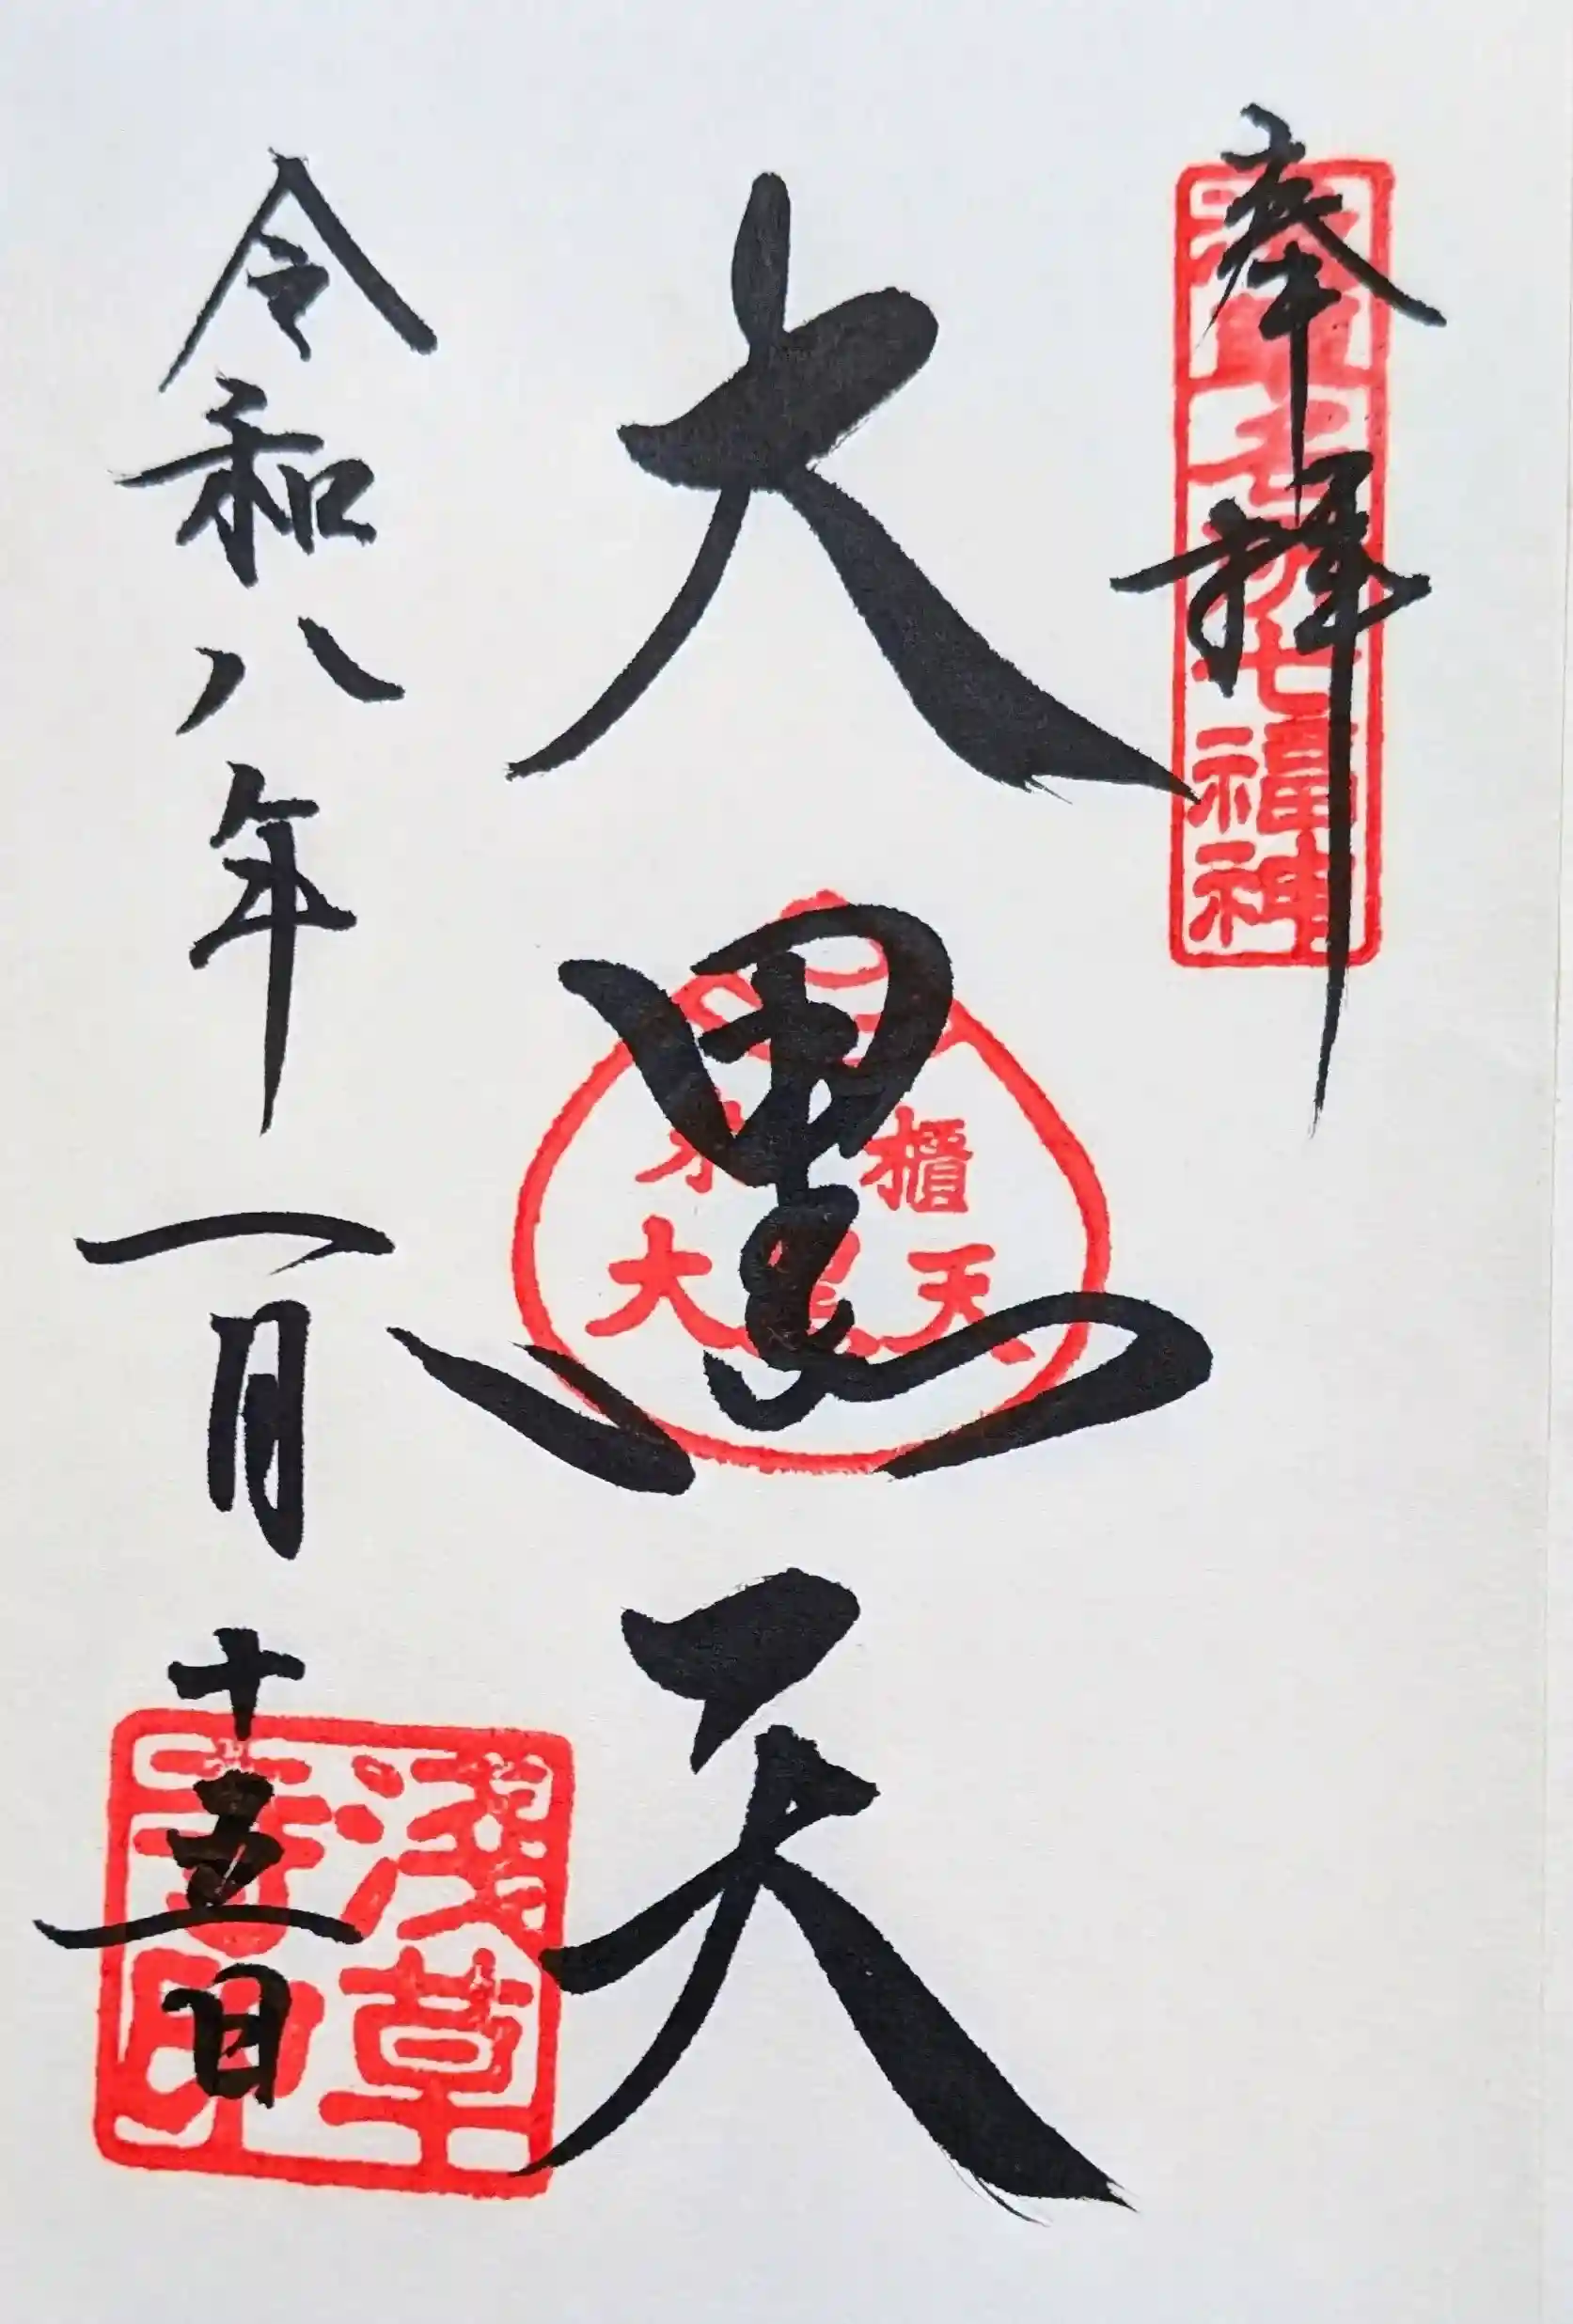 奉拝
浅草名所七福神
大黒天
米櫃
大黒天
令和八年一月十五日
淺草寺印